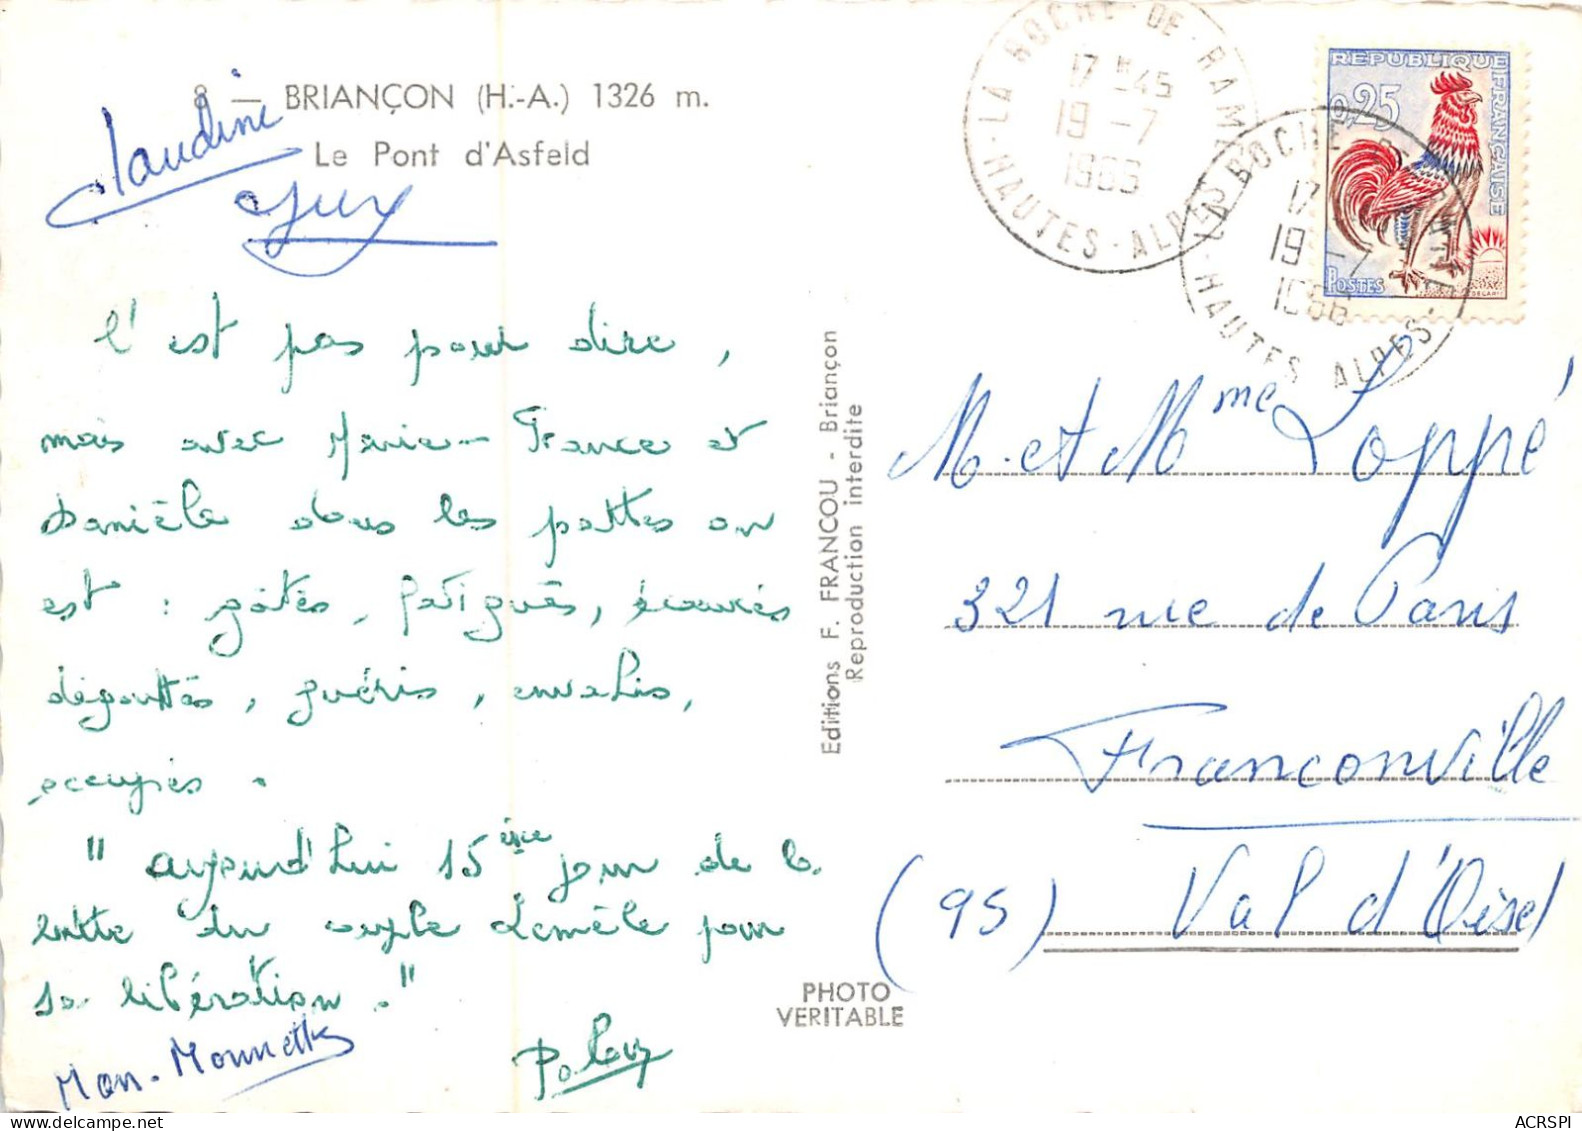 8 — BRIANÇON (H.-A.) 1326 m.
Le Pont d'Asfeld
Claudine
Guy
C'est pas pour dire,
mais avec Marie-France et
Danièle dans les pattes on
est : gâtés, fatigués, écœurés
dégouttés, guéris, envahis,
occupés.
"aujourd'hui 15ème jour de la
lutte du couple Lemèle pour
sa libération."
Man. Monnette
Editions F. FRANCOU - Briançon
Reproduction interdite
PHOTO
VERITABLE
LA ROCHE-DE-RAME
17 H45
19 -7
1966
HAUTES-ALPES
LA ROCHE-DE-RAME
17
19 -7
1966
HAUTES-ALPES
REPUBLIQUE FRANÇAISE
0,25
POSTES
M. et Mme Loppé
321 rue de Paris
Franconville
(95) Val d'Oise
ACRSPI